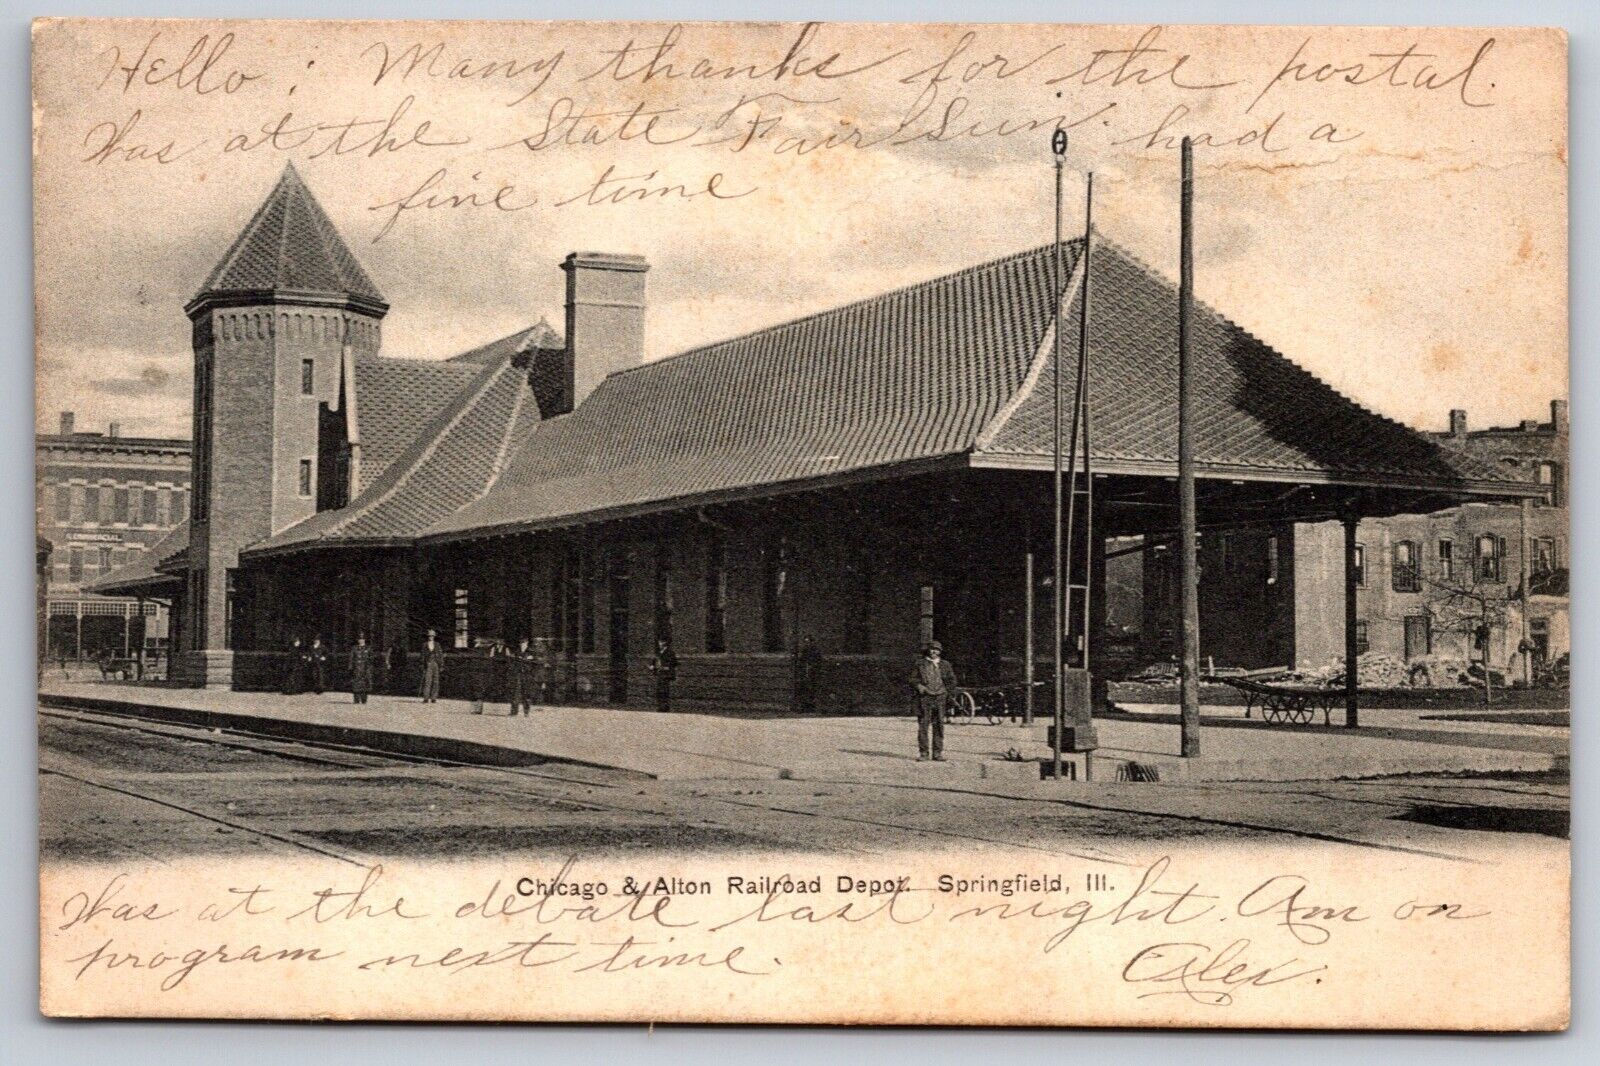 Hello : Many thanks for the postal.
Was at the State Fair Sun. had a
fine time
COMMERCIAL
Chicago & Alton Railroad Depot. Springfield, Ill.
Was at the debate last night. Am on
program next time.